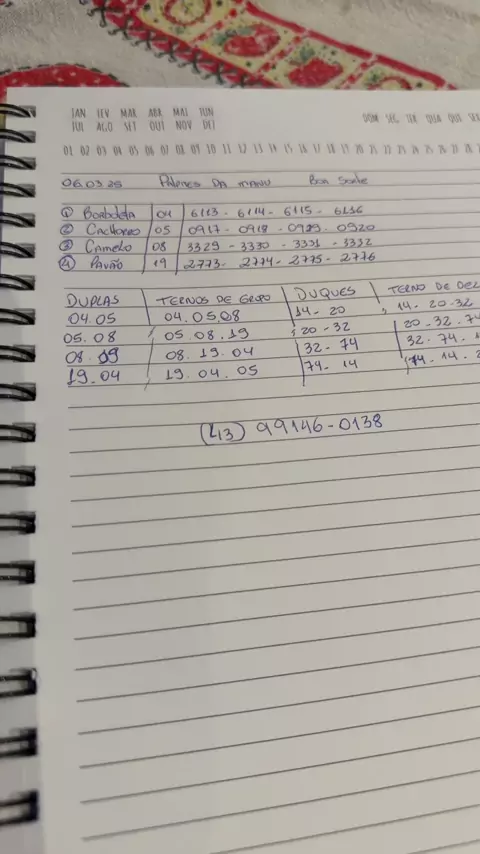 JAN FEV MAR ABR MAI JUN
JUL AGO SET OUT NOV DEZ
DOM SEG TER QUA QUI
01 02 03 04 05 06 07 08 09 10 11 12 13 14 15 16 17 18 19 20 21 22 23 24 25 26 27 28
06.03.25 Palpites da Manu Boa Sorte
① Borboleta 04 6113 - 6114 - 6115 - 6116
② Cachorro 05 0917 - 0918 - 0919 - 0920
③ Camelo 08 3329 - 3330 - 3331 - 3332
④ Pavão 19 2773 - 2774 - 2775 - 2776
DUPLAS TERNOS DE GRUPO DUQUES TERNO DE DEZ
04.05 04.05.08 14 - 20 14 - 20 - 32
05.08 05.08.19 20 - 32 20 - 32 - 74
08.19 08.19.04 32 - 74 32 - 74 -
19.04 19.04.05 74 - 14 74 - 14 -
(43) 99146-0138